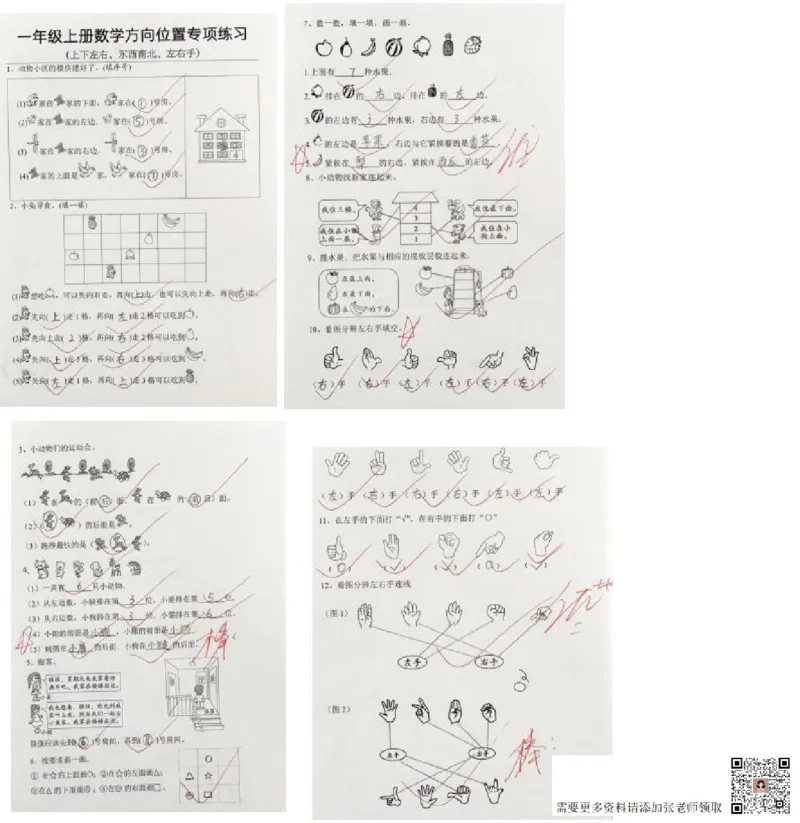 一年级上册数学方向位置专项练习
(上下左右、东西南北、左右手)
1、动物小区的楼房建好了。(填序号)
(1) 家在 家的下面, 家在( )号房。
(2) 家在 家的左边, 家在(5)号房。
(3) 家在 家的右边, 家在(3)号房。
(4) 家的上面是 家, 家在( )号房。
4
2、小兔寻食。(填一填)
(1) 想吃 ,可以先向右走,再向(上)走,也可以先向上走,再向(右)走。
(2) 先向(上)走1格,再向(左)走2格可以吃到 。
(3) 先向上走(2)格,再向(右)走2格可以吃到 。
(4) 先向(上)走3格,再向(右)走3格可以吃到 。
(5) 先向(左)走1格,再向(上)走3格可以吃到 。
7、数一数,填一填,画一画。
1.上面有 7 种水果。
2. 排在 的 右 边,排在 的 左 边。
3. 的左边有 3 种水果,右边有 3 种水果。
4. 的左边是 苹果 ,右边与它紧挨着的是
5. 紧挨在 梨 的右边,紧挨在 西瓜 的左边。
8、小动物找新家连起来。
我住三楼。
我住最下面。
我住在小
上面一层。
我住在小
狗上面。
4
3
2
1
9、摆水果。把水果与相应的摆放层数连起来。
在最上面。
在最下面。
在 的下面。
10、看图分辨左右手填空。
(右)手 (右)手 (左)手 (左)手 (右)手 (左)手
3、小动物们的运动会。
(1) 在 的(前 后)面, 在 的(前 后)面。
(2)( )的后面是 。
(3)跑得最快的是( )。
4、
(1)一共有 6 只小动物。
(2)从左边数,小猴排在第 3 位,小鹿排在第 5 位。
(3)从右边数,小狗排在第 3 位,小猫排在第 6 位。
(4)小狗的前面是 ,小熊的前面是
(5) 的后面,小狗在 的后面。
棒
5、做客。
强强应该先到(6)号房间,再到(5)号房间。
6、按要求画一画。
①在☆的上面画○;②在☆的左面画△;
③在△的下面画◎;④在◎的右面画□。
(左)手 (右)手 (右)手 (右)手 (左)手 (左)手
11、在左手的下面打“√”,在右手的下面打“○”
12、看图分辨左右手连线
(图1)
左手 右手
(图2)
左手 右手
棒
需要更多资料请添加张老师领取